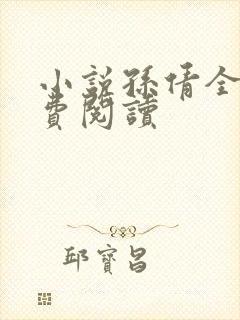 小説孫倩全
費閱讀
邱寶昌